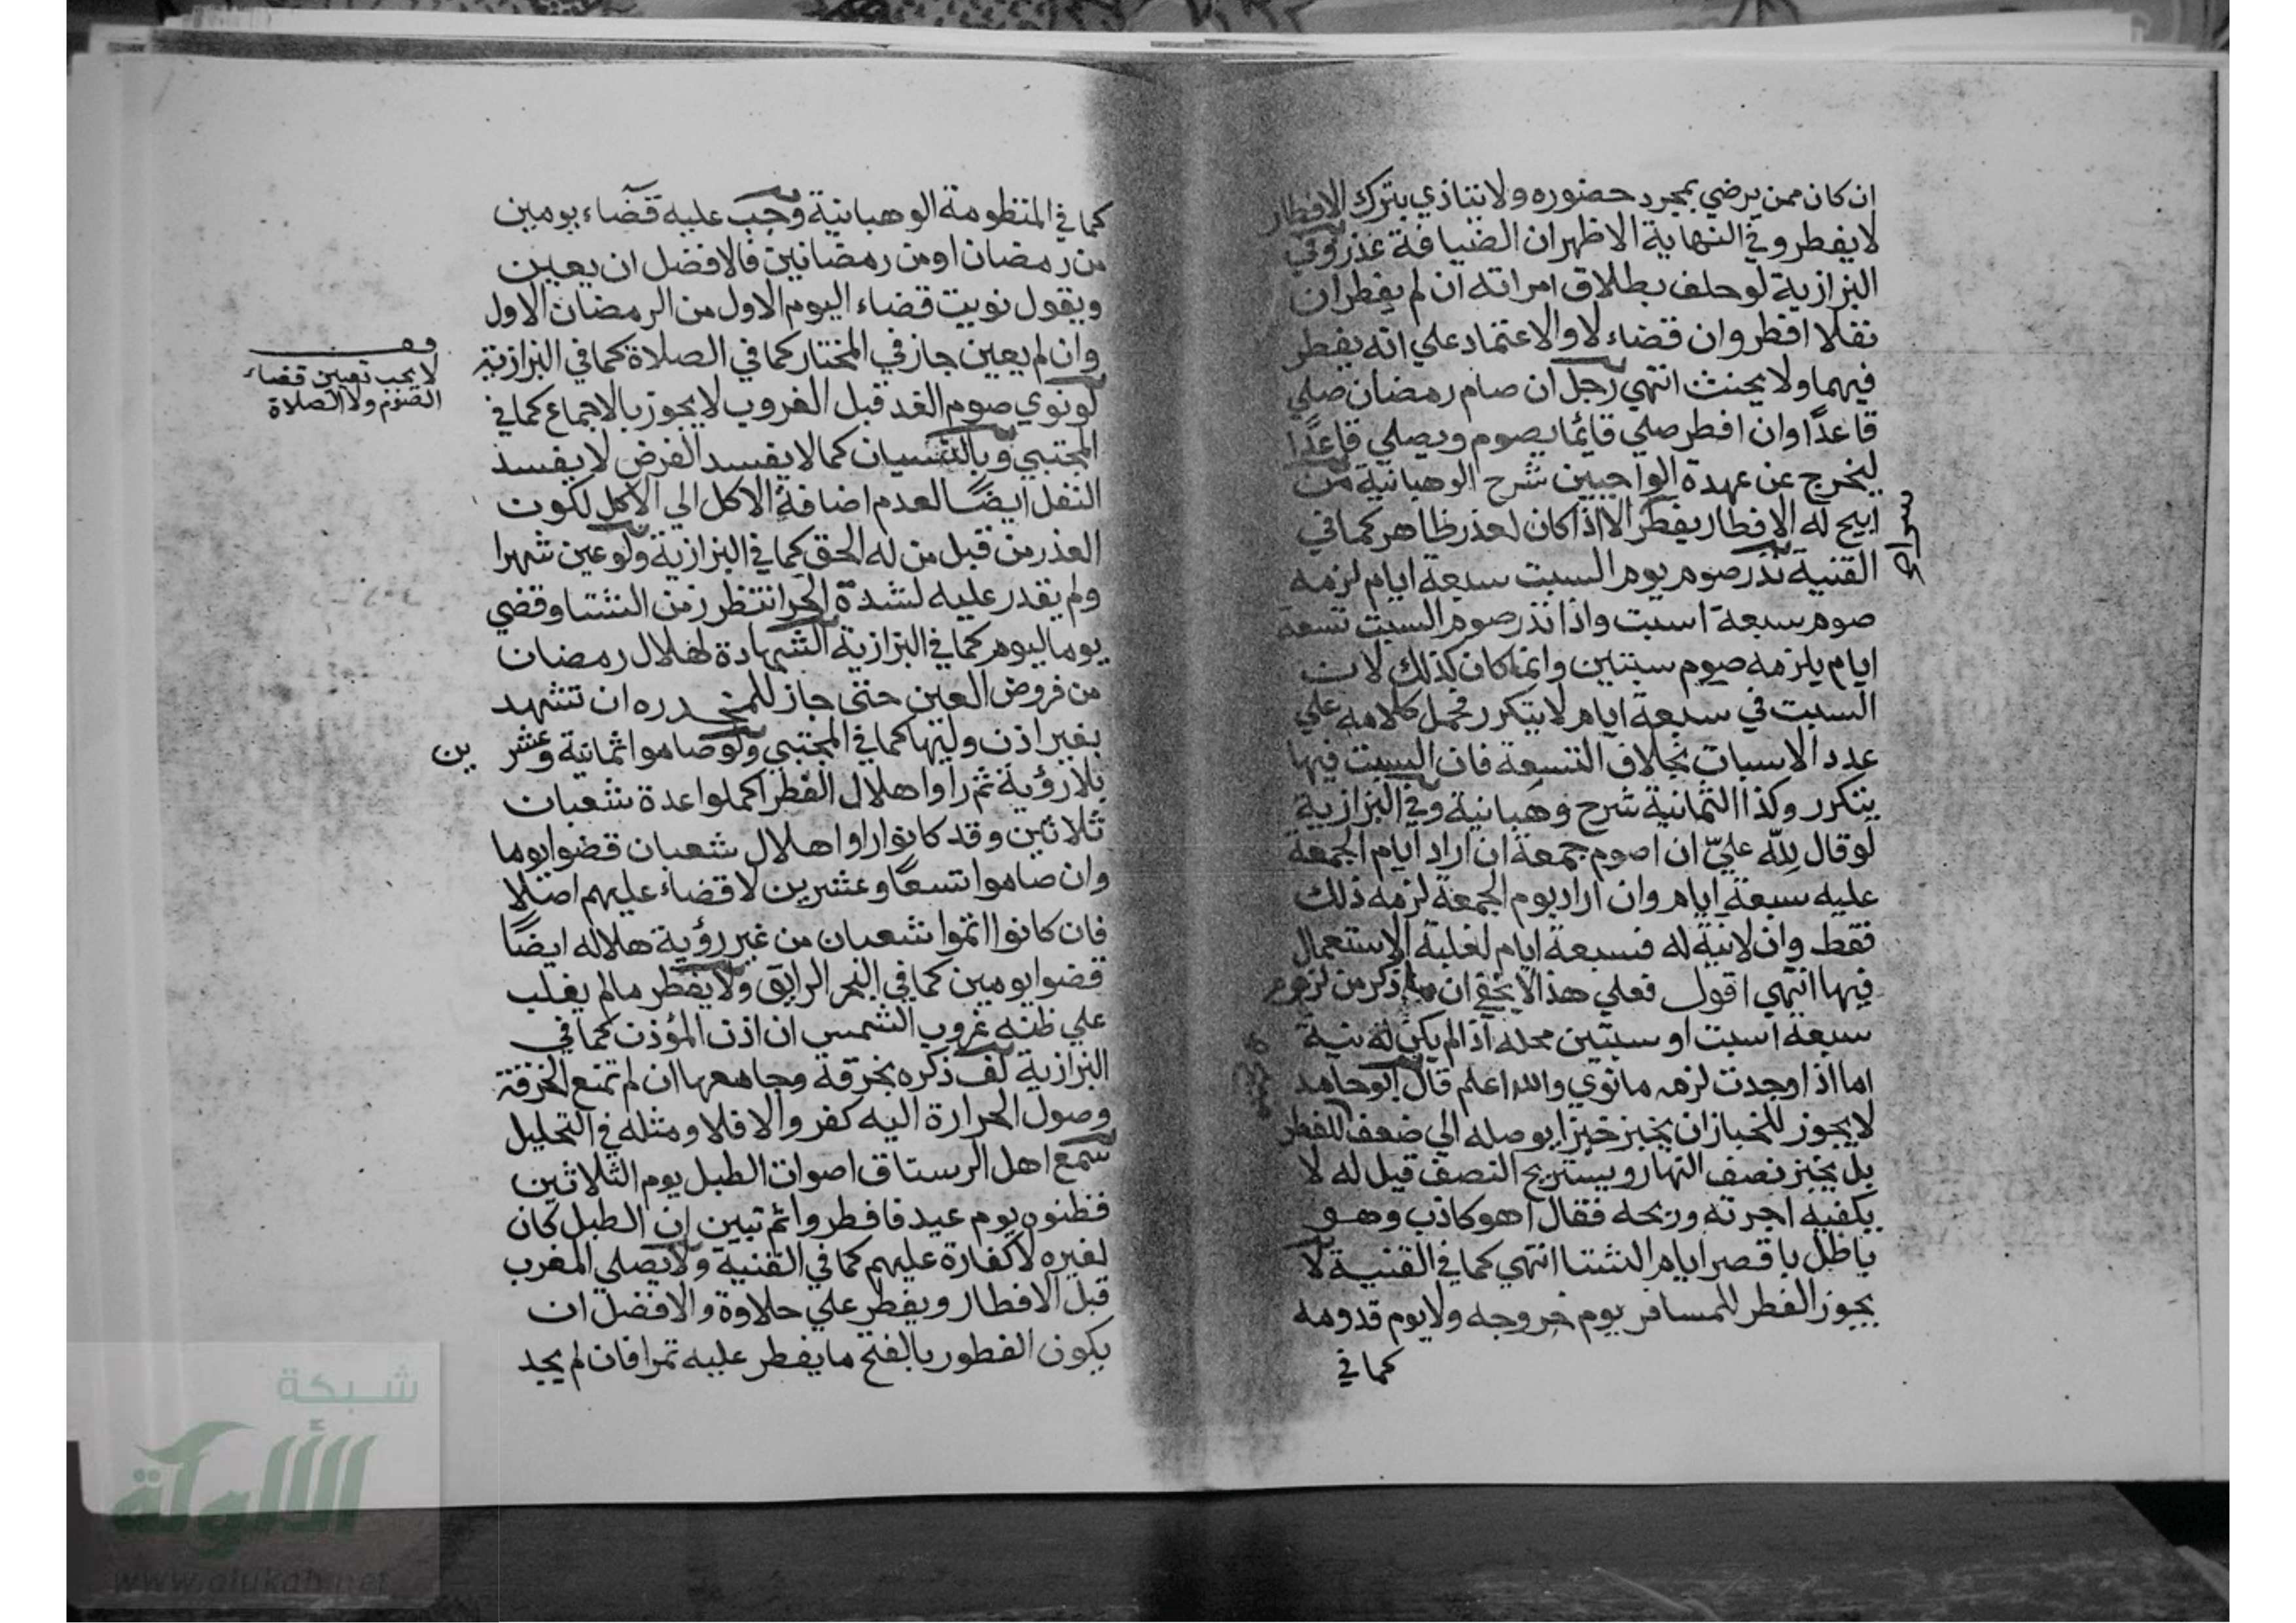 ان كان ممن يرضي بمجرد حضوره ولا يتاذي بترك الافطار
لا يفطر وفي النهاية الاظهر ان الضيافة عذر وفي
البزازية لو حلف بطلاق امراته ان لم يفطر ان
نفلا افطر وان قضاء لا والاعتماد علي انه يفطر
فيهما ولا يحنث انتهي رجل ان صام رمضان صلي
قاعدًا وان افطر صلي قائما يصوم ويصلي قاعدًا
ليخرج عن عهدة الواجبين شرح الوهبانية من
ابيح له الافطار يفطر الا اذا كان لعذر ظاهر كما في
القنية نذر صوم يوم السبت سبعة ايام لزمه
صوم سبعة اسبت واذا نذر صوم السبت تسعة
ايام يلزمه صوم سبتين وانما كان كذلك لان
السبت في سبعة ايام لا يتكرر فحمل كلامه علي
عدد الاسبات بخلاف التسعة فان السبت فيها
يتكرر وكذا الثمانية شرح وهبانية وفي البزازية
لو قال لله عليّ ان اصوم جمعة ان اراد ايام الجمعة
عليه سبعة ايام وان اراد يوم الجمعة لزمه ذلك
فقط وان لا نية له فسبعة ايام لغلبة الاستعمال
فيها انتهي اقول فعلي هذا لا يخفي ان ما ذكر من لزوم
سبعة اسبت او سبتين محله اذا لم يكن له نية
اما اذا وجدت لزمه ما نوي والله اعلم قال ابو حامد
لا يجوز للخباز ان يخبز خبزا يوصله الي ضعف للفطر
بل يخبز نصف النهار ويستريح النصف قيل له لا
يكفيه اجرته وربحه فقال هو كاذب وهو
باطل باقصر ايام الشتا انتهي كما في القنية لا
يجوز الفطر للمسافر يوم خروجه ولا يوم قدومه
كما في
كما في المنظومة الوهبانية وجب عليه قضاء يومين
من رمضان او من رمضانين فالافضل ان يعين
ويقول نويت قضاء اليوم الاول من الرمضان الاول
وان لم يعين جاز في المختار كما في الصلاة كما في البزازية
لو نوي صوم الغد قبل الغروب لا يجوز بالاجماع كما في
المجتبي وبالنسيان كما لا يفسد الفرض لا يفسد
النفل ايضًا لعدم اضافة الاكل الي الآكل لكون
العذر من قبل من له الحق كما في البزازية ولو عين شهرا
ولم يقدر عليه لشدة الحر انتظر زمن الشتا وقضي
يوما ليوم كما في البزازية الشهادة لهلال رمضان
من فروض العين حتى جاز للمخدره ان تشهد
بغير اذن وليها كما في المجتبي ولو صاموا ثمانية وعشرين
بلا رؤية ثم راوا هلال الفطر اكملوا عدة شعبان
ثلاثين وقد كانوا راوا هلال شعبان قضوا يوما
وان صاموا تسعًا وعشرين لا قضاء عليهم اصلا
فان كانوا اتموا شعبان من غير رؤية هلاله ايضًا
قضوا يومين كما في البحر الرايق ولا يفطر ما لم يغلب
علي ظنه غروب الشمس ان اذن المؤذن كما في
البزازية لف ذكره بخرقة وجامعها ان لم تمنع الخرقة
وصول الحرارة اليه كفر والا فلا ومثله في التحليل
سمع اهل الرستاق اصوات الطبل يوم الثلاثين
فظنوه يوم عيد فافطروا ثم تبين ان الطبل كان
لغيره لا كفارة عليهم كما في القنية ولا يصلي المغرب
قبل الافطار ويفطر علي حلاوة والافضل ان
يكون الفطور بالفتح ما يفطر عليه تمرا فان لم يجد
لا يجب تعيين قضاء
الصوم ولا الصلاة
شبكة
الألوكة
www.alukah.net